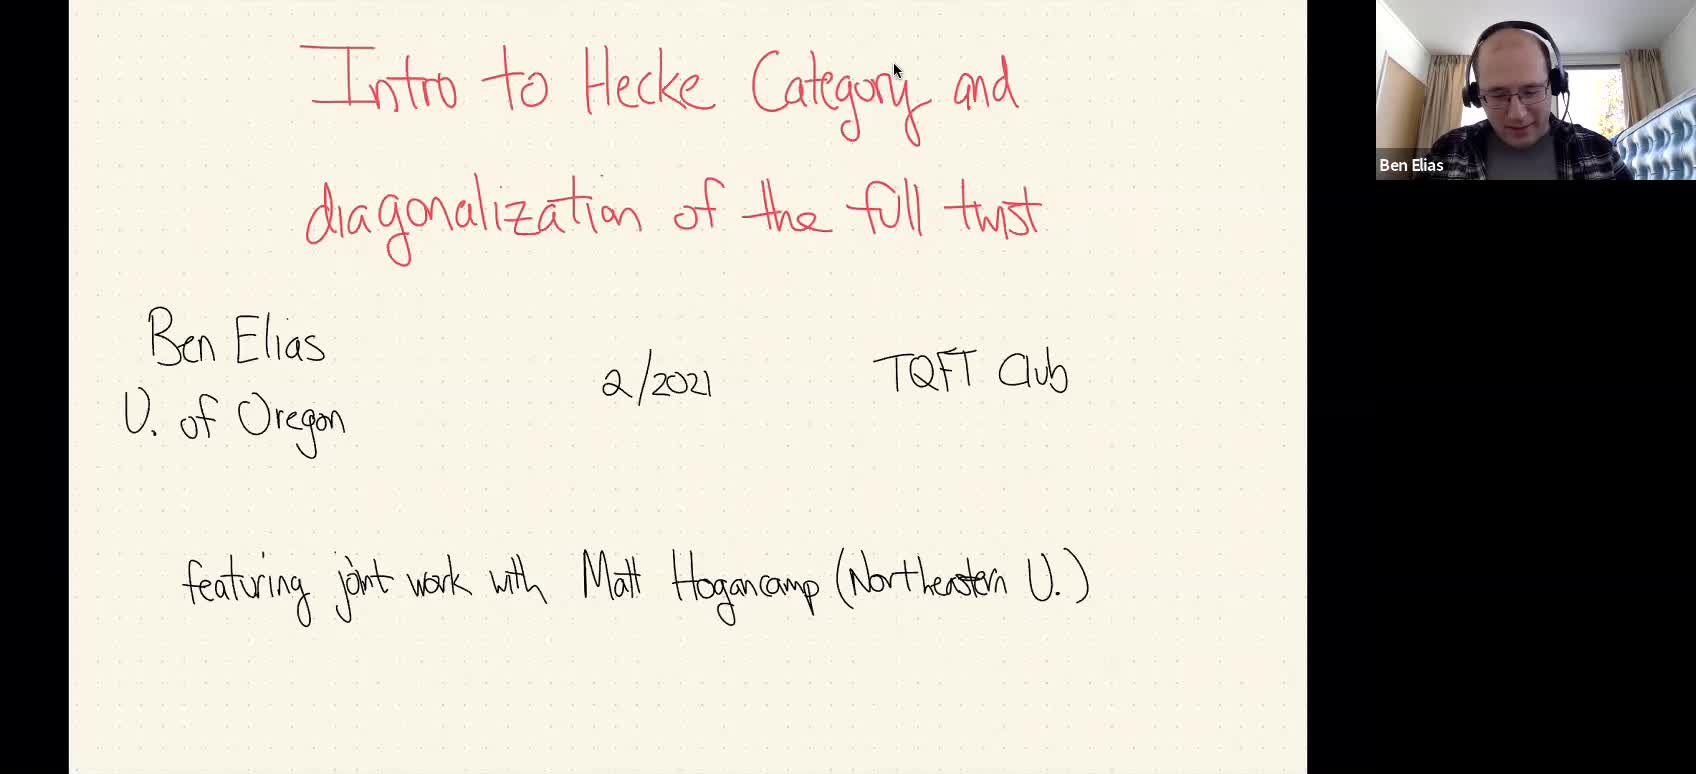 Intro to Hecke Category and
diagonalization of the full twist
Ben Elias
U. of Oregon
2/2021
TQFT Club
featuring joint work with Matt Hogancamp (Northeastern U.)
Ben Elias